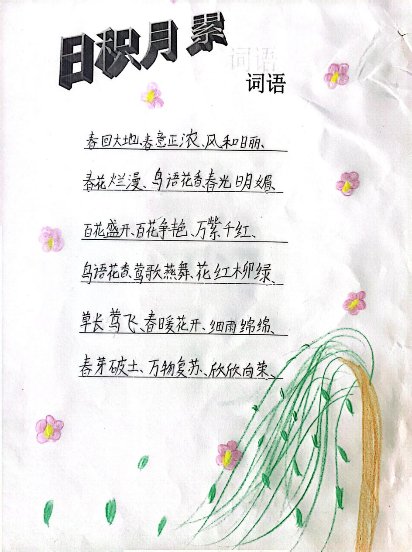 日积月累
词语
词语
春回大地、春意正浓、风和日丽、
春花烂漫、鸟语花香、春光明媚、
百花盛开、百花争艳、万紫千红、
鸟语花香、莺歌燕舞、花红柳绿、
草长莺飞、春暖花开、细雨绵绵、
春芽破土、万物复苏、欣欣向荣、